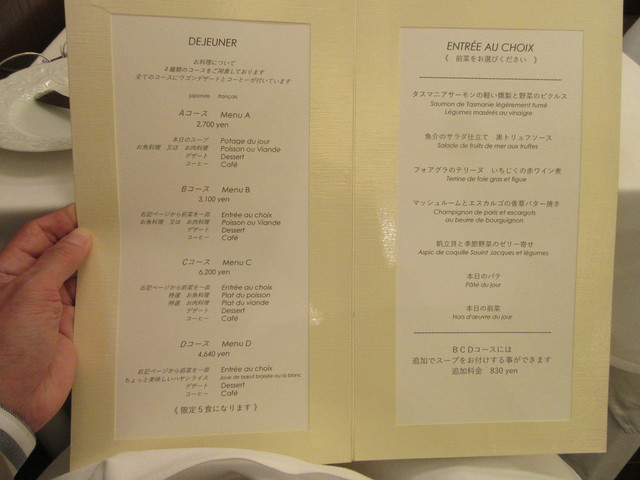 DEJEUNER
お料理について
4種類のコースをご用意しております
全てのコースにワゴンデザートとコーヒーが付いています
japonais français
Aコース Menu A
2,700 yen
本日のスープ Potage du jour
お魚料理 又は お肉料理 Poisson ou Viande
デザート Dessert
コーヒー Café
Bコース Menu B
3,100 yen
右記ページから前菜を一品 Entrée au choix
お魚料理 又は お肉料理 Poisson ou Viande
デザート Dessert
コーヒー Café
Cコース Menu C
6,200 yen
右記ページから前菜を一品 Entrée au choix
特選 お魚料理 Plat du poisson
特選 お肉料理 Plat du viande
デザート Dessert
コーヒー Café
Dコース Menu D
4,640 yen
右記ページから前菜を一品 Entrée au choix
ちょっと美味しいハヤシライス Joue de bœuf braisée au riz blanc
デザート Dessert
コーヒー Café
《 限定5食になります 》
ENTRÉE AU CHOIX
《 前菜をお選びください 》
タスマニアサーモンの軽い燻製と野菜のピクルス
Saumon de Tasmanie légèrement fumé
Légumes masérés au vinaigre
魚介のサラダ仕立て 黒トリュフソース
Salade de fruits de mer aux truffes
フォアグラのテリーヌ いちじくの赤ワイン煮
Terrine de foie gras et figue
マッシュルームとエスカルゴの香草バター焼き
Champignon de paris et escargots
au beurre de bourguignon
帆立貝と季節野菜のゼリー寄せ
Aspic de coquille Sauint Jacques et légumes
本日のパテ
Pâté du jour
本日の前菜
Hors d'œuvre du jour
BCDコースには
追加でスープをお付けする事ができます
追加料金 830 yen